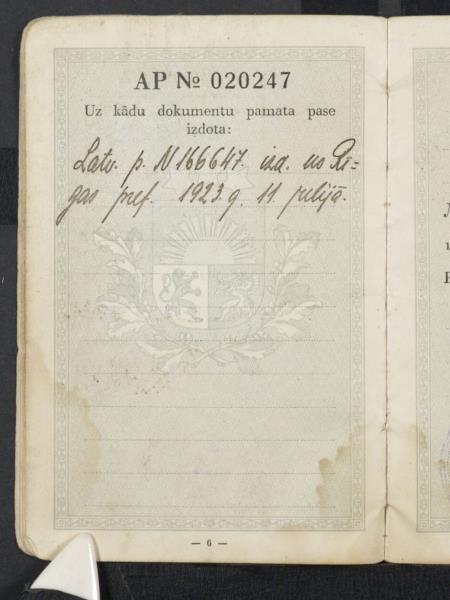 AP № 020247
Uz kādu dokumentu pamata pase
izdota:
Latv. p. N 166647. izd. no Rī-
gas pref. 1923. g. 11. jūlijā.
— 6 —